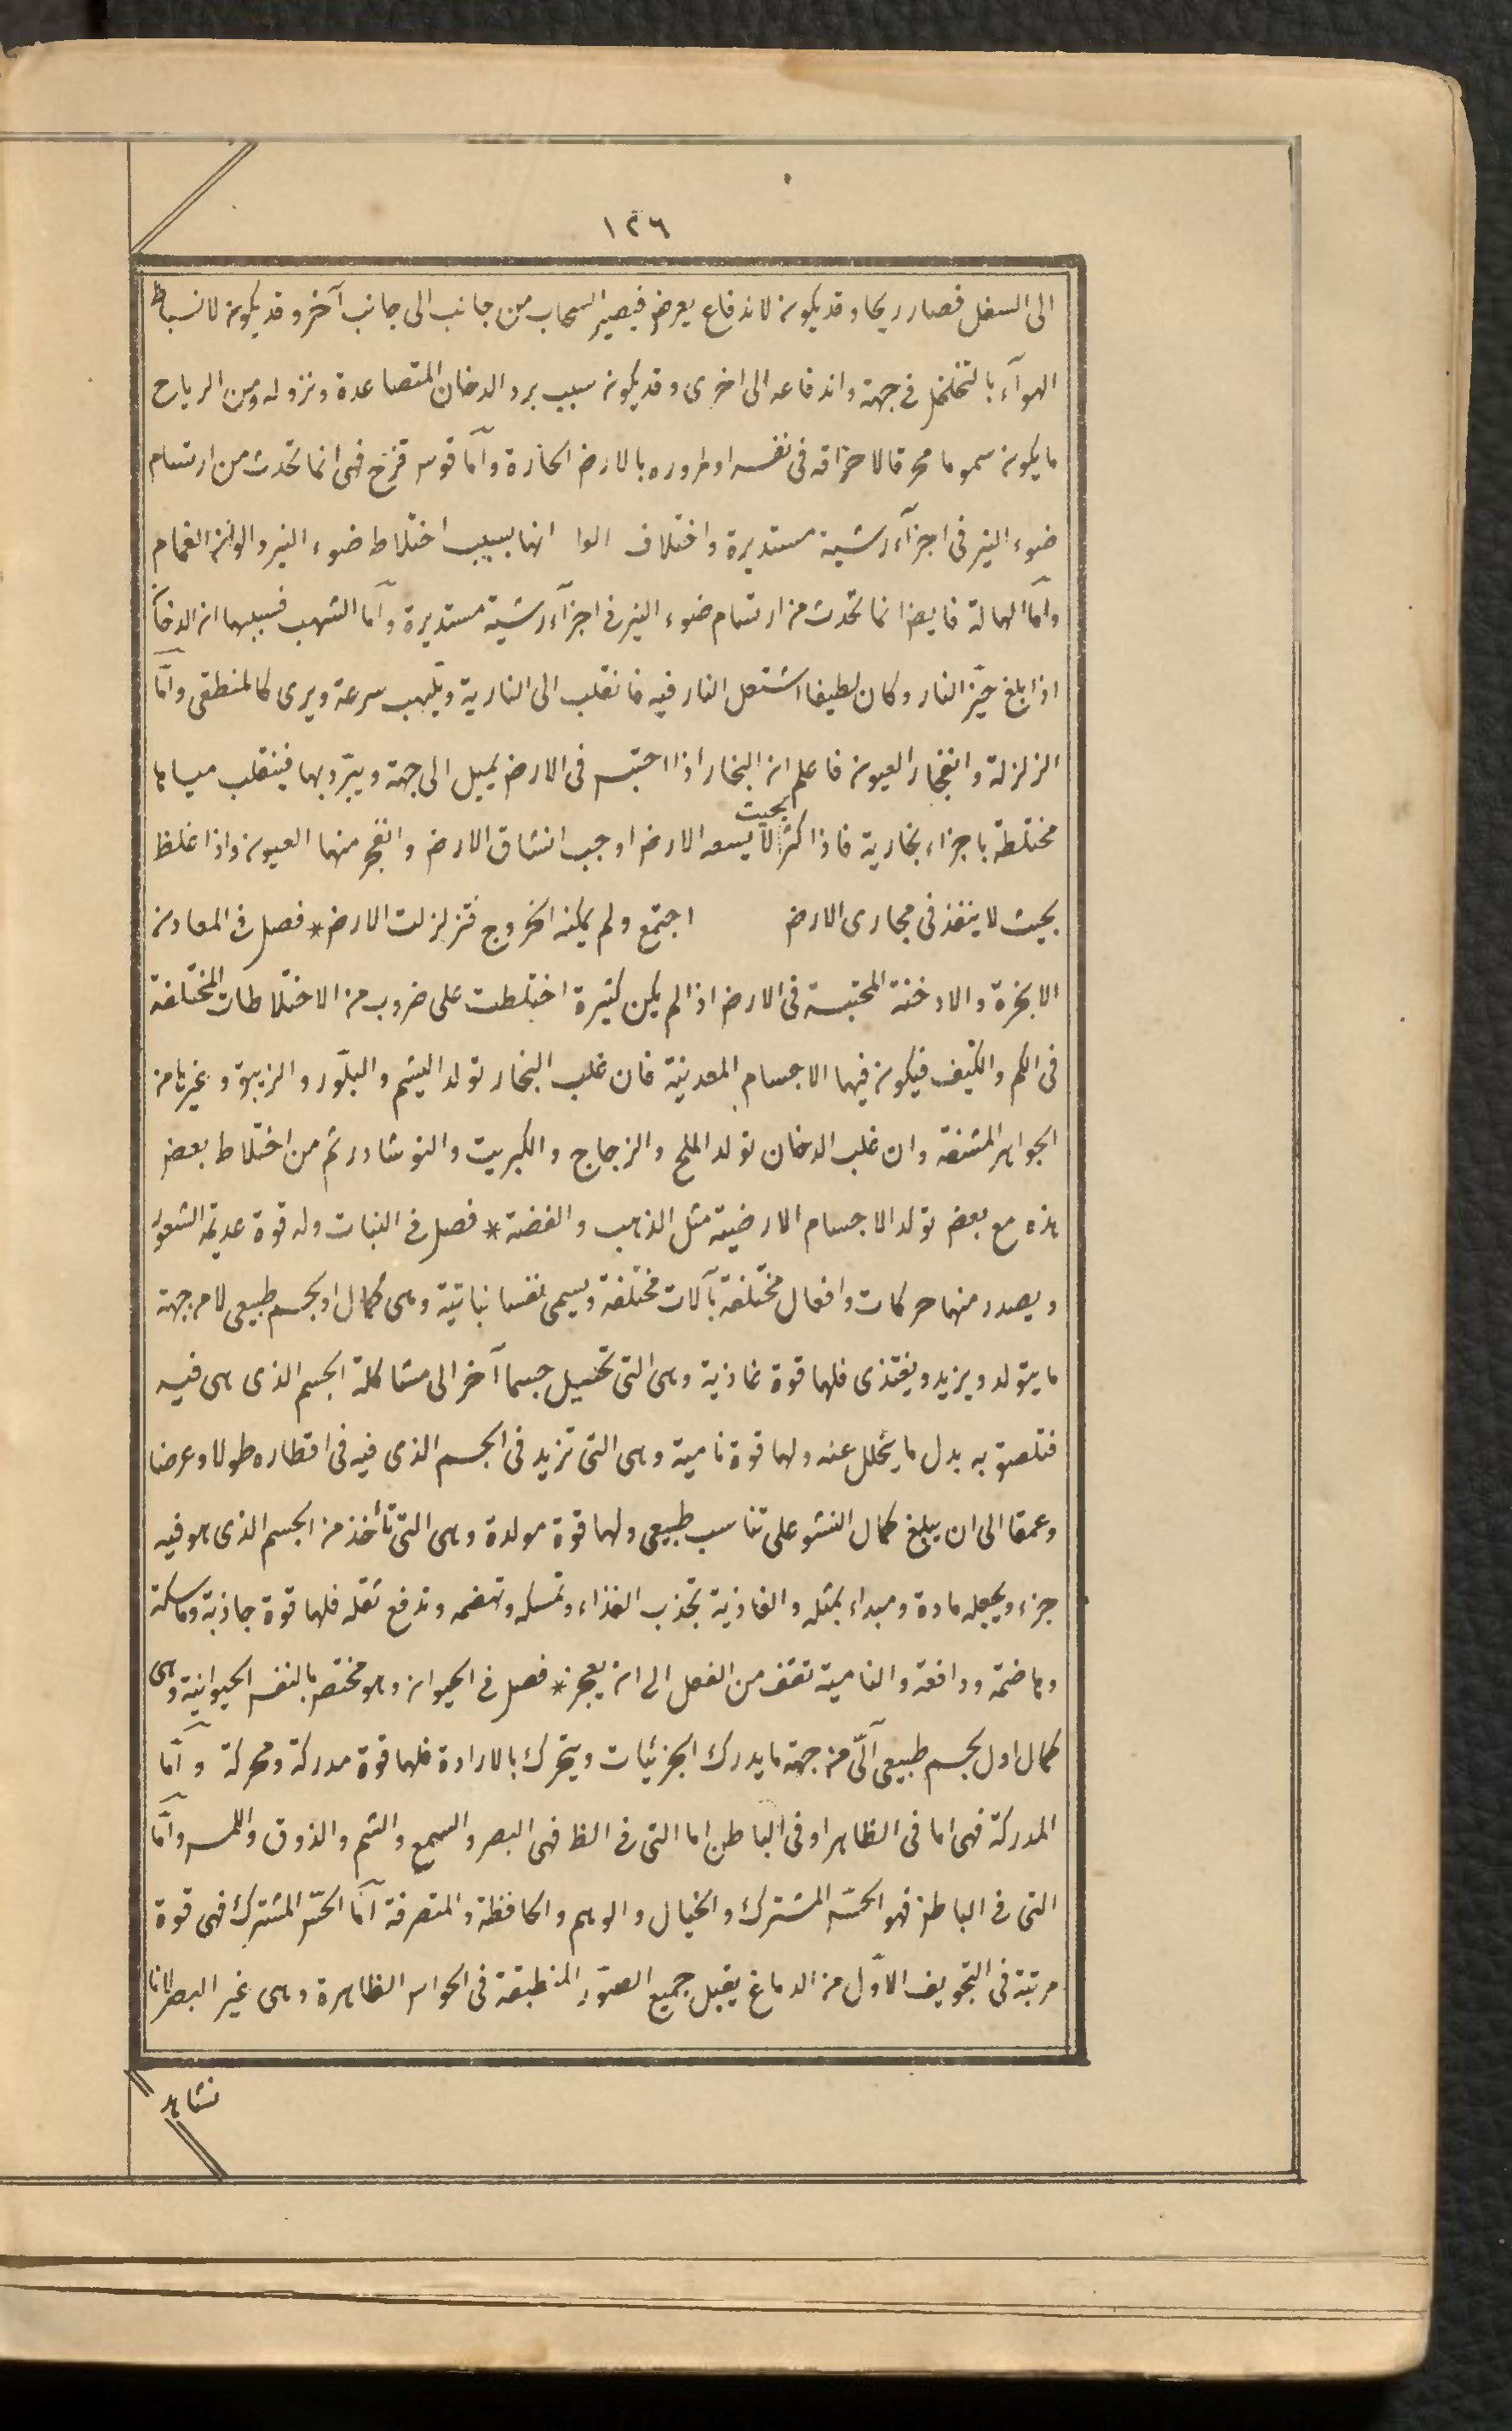 ١٢٦
الى السفل فصار ريحا وقد يكون لاندفاع يعرض فيصير السحاب من جانب الى جانب آخر وقد يكون لانبساط
الهوآء بالتخلخل فى جهة واندفاعه الى اخرى وقد يكون سبب برد الدخان المتصاعدة ونزوله ومن الرياح
ما يكون سموما محرقا لاحراقه فى نفسه او لمروره بالارض الحارة وامّا قوس قزح فهى انما تحدث من ارتسام
ضوء النير فى اجزآء رشية مستديرة واختلاف الوا انها بسبب اختلاط ضوء النير والوان الغمام
وامّا الهالة فايضا انما تحدث من ارتسام ضوء النير فى اجزآء رشية مستديرة وامّا الشهب فسببها ان الدخان
اذا بلغ حيّز النار وكان لطيفا اشتعل النار فيه فانقلب الى النارية ويلهب سرعة ويرى كالمنطفى وامّا
الزلزلة وانفجار العيون فاعلم ان البخار اذا احتبس فى الارض يميل الى جهة ويبرّد بها فينقلب مياها
مختلطة باجزاء بخارية فاذا كثر بحيث لا يسعه الارض اوجب انشقاق الارض وانفجر منها العيون واذا غلظ
بحيث لا ينفذ فى مجارى الارض اجتمع ولم يمكنه الخروج فتزلزلت الارض * فصل فى المعادن
الابخرة والادخنة المحتبسة فى الارض اذا لم يكن كثيرة اختلطت على ضروب من الاختلاطات المختلفة
فى الكم والكيف فيكون فيها الاجسام المعدنية فان غلب البخار تولد اليشم والبلّور والزيبق وغيرها من
الجواهر المشفة وان غلب الدخان تولد الملح والزجاج والكبريت والنوشادر ثم من اختلاط بعض
هذه مع بعض تولد الاجسام الارضية مثل الذهب والفضة * فصل فى النبات وله قوة عديمة الشعور
ويصدر منها حركات وافعال مختلفة بآلات مختلفة ويسمى نفسا نباتية وهى كمال اول لجسم طبيعى لا من جهة
ما يتولد ويزيد ويغتذى فلها قوة غاذية وهى التى تحيل جسما آخر الى مشاكلة الجسم الذى هى فيه
فتلصق به بدل ما يتحلل عنه ولها قوة نامية وهى التى تزيد فى الجسم الذى فيه فى اقطاره طولا وعرضا
وعمقا الى ان يبلغ كمال النشو على تناسب طبيعى ولها قوة مولدة وهى التى تأخذ من الجسم الذى هو فيه
جزء ويجعله مادة ومبداء بمثله والغاذية تجذب الغذاء وتمسكه وتهضمه وتدفع ثقله فلها قوة جاذبة وماسكة
وهاضمة ودافعة والنامية تقف من الفعل الى ان يعجز * فصل فى الحيوان وهو مختص بالنفس الحيوانية وهى
كمال اول لجسم طبيعى آلىّ من جهة ما يدرك الجزئيات ويتحرك بالارادة فلها قوة مدركة ومحركة وامّا
المدركة فهى اما فى الظاهر او فى الباطن اما التى فى الظ فهى البصر والسمع والشم والذوق واللمس وامّا
التى فى الباطن فهو الحسّ المشترك والخيال والوهم والحافظة والمتصرفة امّا الحسّ المشترك فهى قوة
مرتبة فى التجويف الاوّل من الدماغ يقبل جميع الصوّر المنطبقة فى الحواس الظاهرة وهى غير البصر لانا
نشاهد